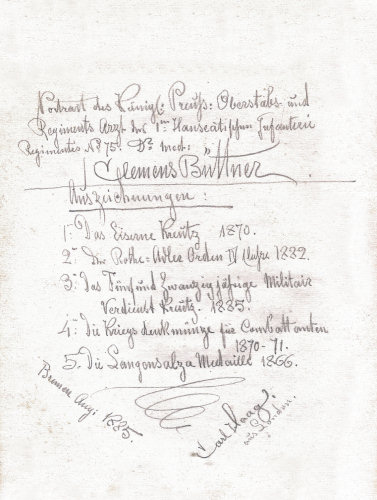 Portrait des Königl: Preuß: Oberstabs- und
Regiments Arzt des 1ten Hanseatischen Infanterie
Regimentes No 75. Dr. med:
Clemens Büttner
Auszeichnungen:
1. Das Eiserne Kreutz 1870.
2. Der Rothe-Adler Orden IV Classe 1882.
3. Das Fünf und Zwanzig jährige Militair
Verdienst Kreutz. 1885.
4. Die Kriegs denkmünze für Combattanten
1870-71.
5. Die Langensalza Medaille 1866.
Bremen Aug: 1885.
Carl Haag.
aus London.